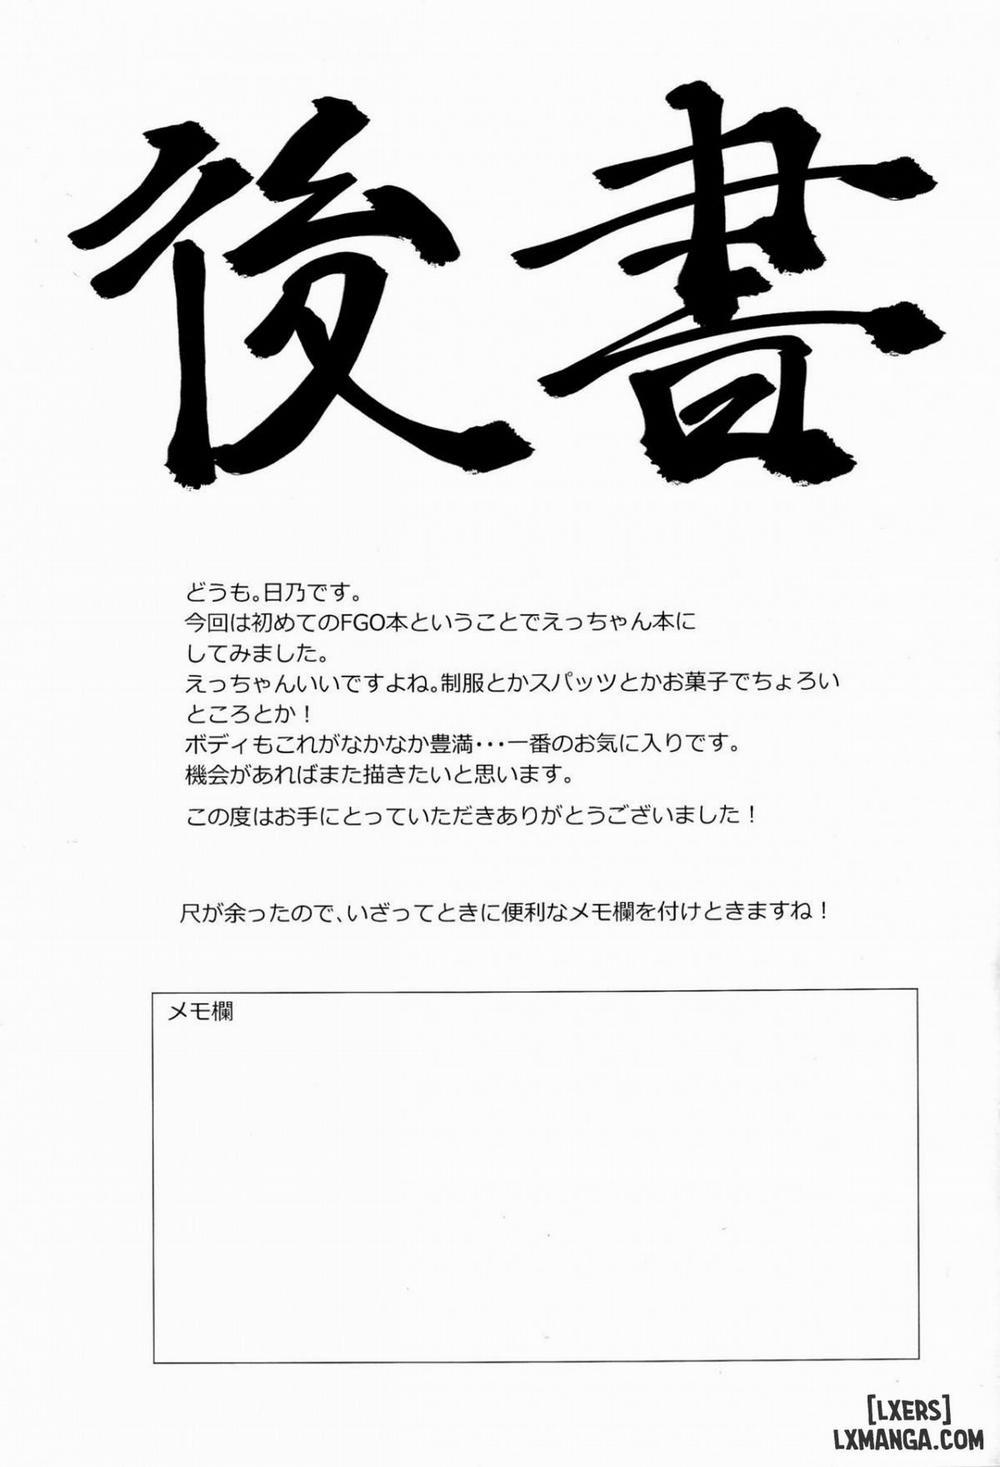 後書
どうも。日乃です。
今回は初めてのFGO本ということでえっちゃん本に
してみました。
えっちゃんいいですよね。制服とかスパッツとかお菓子でちょろい
ところとか！
ボディもこれがなかなか豊満・・・一番のお気に入りです。
機会があればまた描きたいと思います。
この度はお手にとっていただきありがとうございました！
尺が余ったので、いざってときに便利なメモ欄を付けときますね！
メモ欄
[LXERS]
LXMANGA.COM